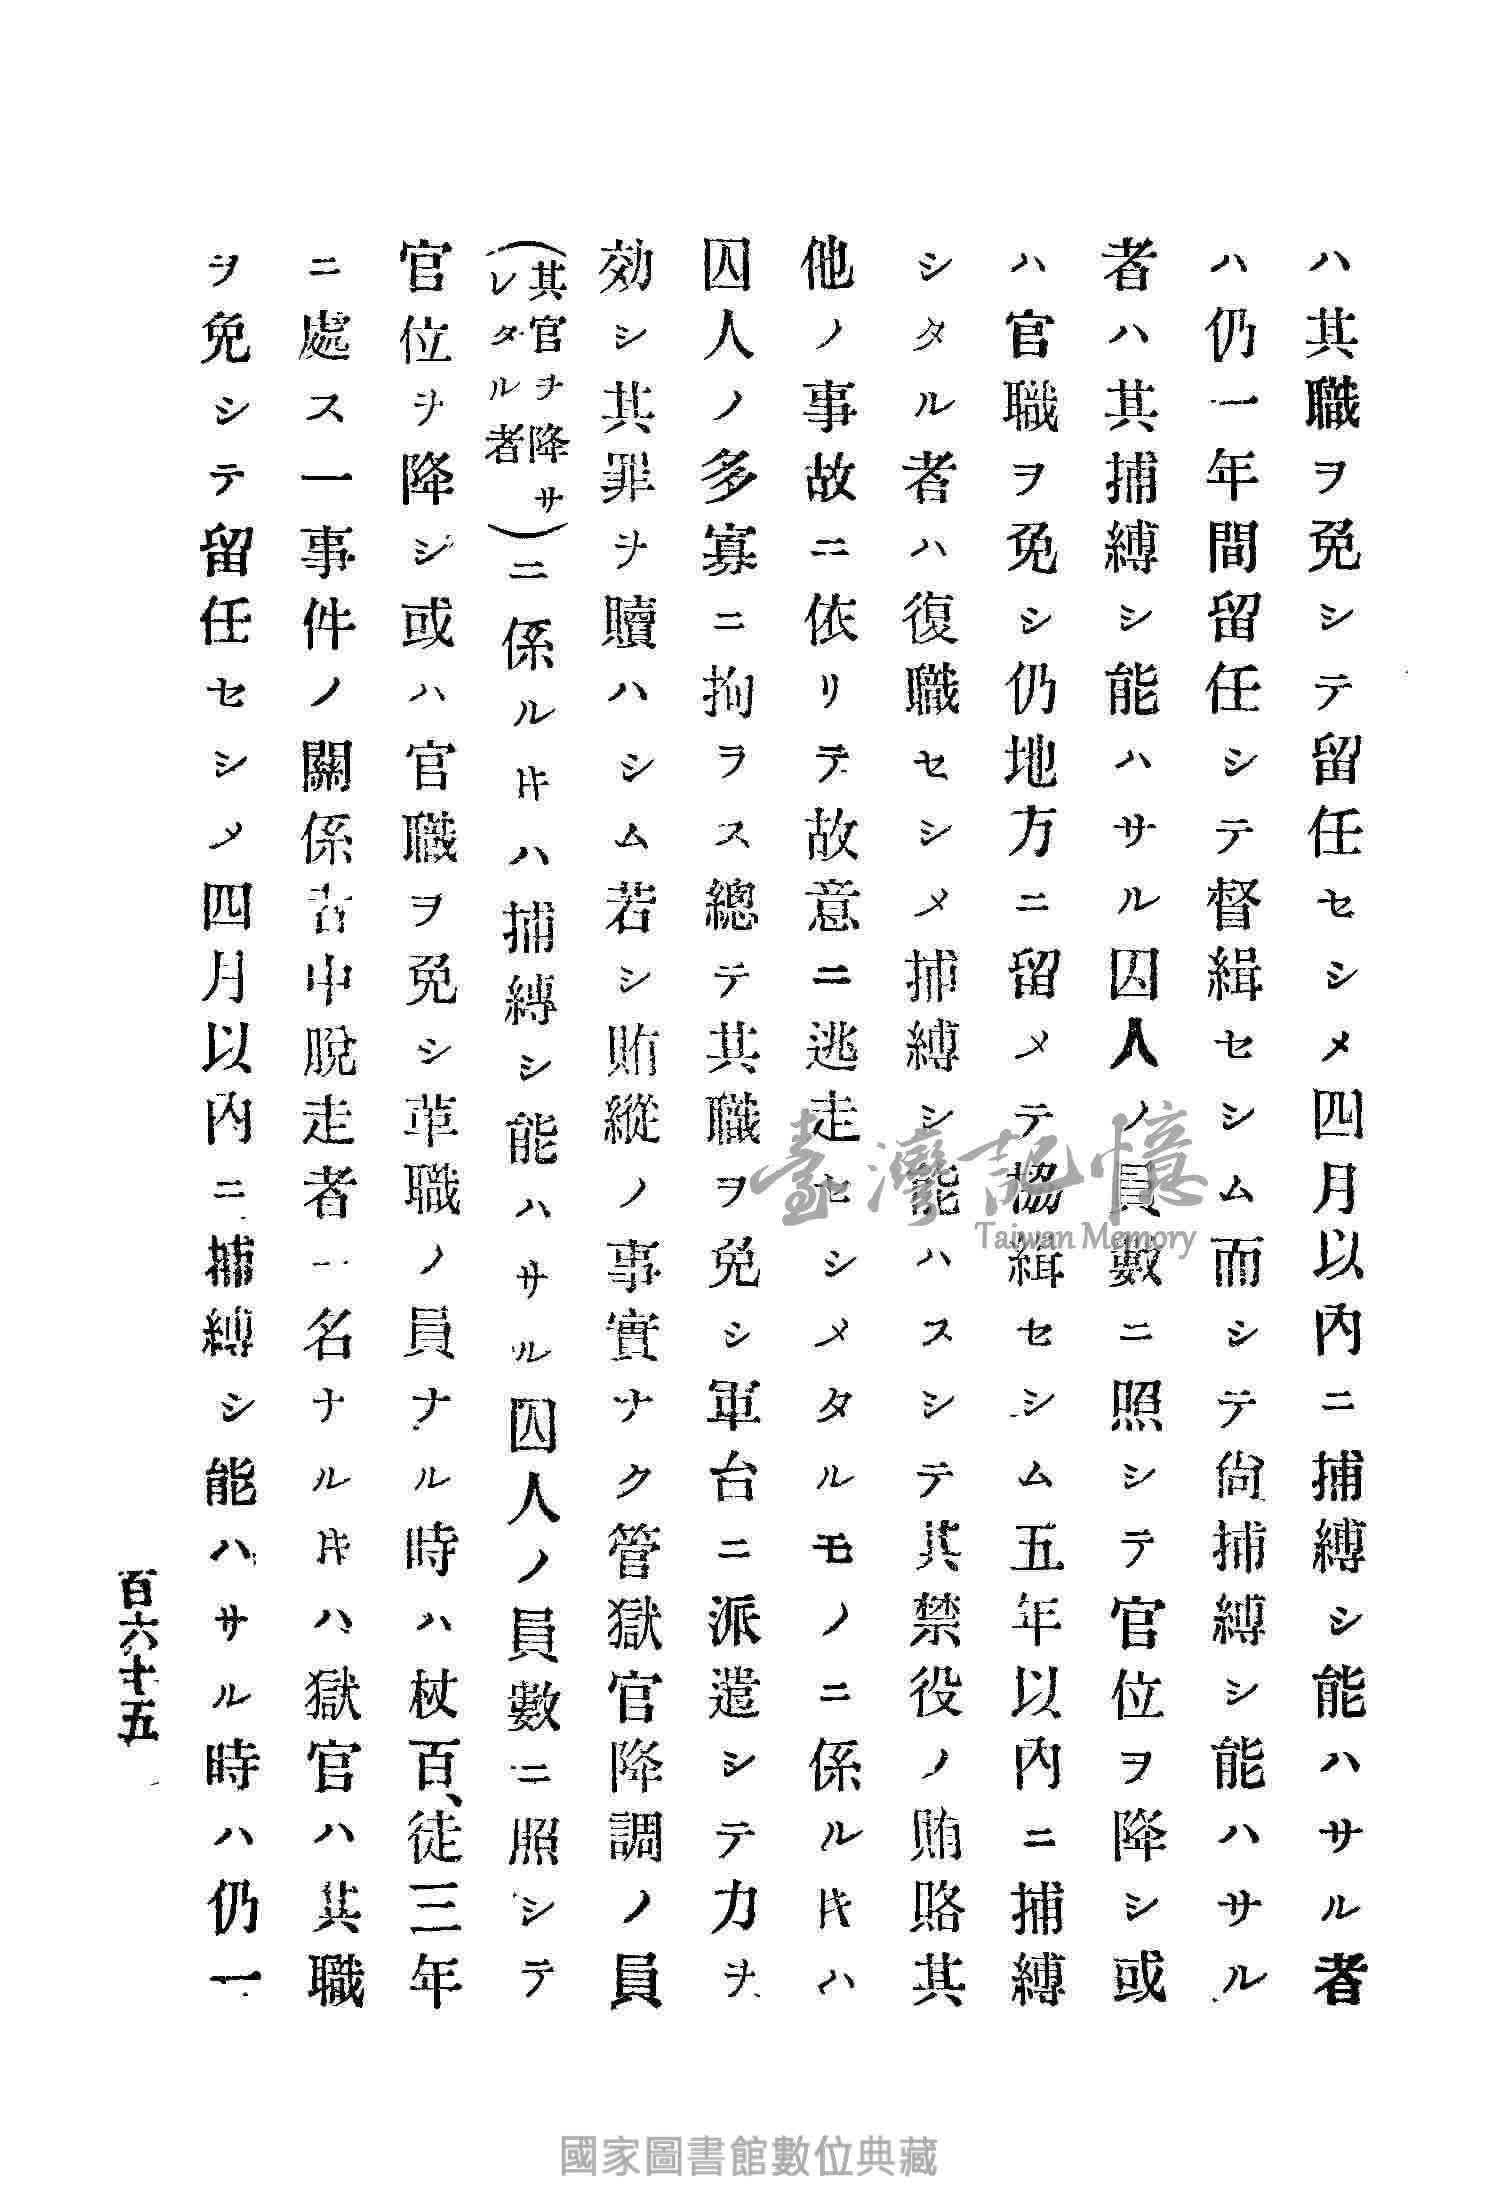 ハ其職ヲ免シテ留任セシメ四月以內ニ捕縛シ能ハサル者
ハ仍一年間留任シテ督緝セシム而シテ尙捕縛シ能ハサル
者ハ其捕縛シ能ハサル囚人ノ員數ニ照シテ官位ヲ降シ或
ハ官職ヲ免シ仍地方ニ留メテ協緝セシム五年以內ニ捕縛
シタル者ハ復職セシメ捕縛シ能ハスシテ其禁役ノ賄賂其
他ノ事故ニ依リテ故意ニ逃走セシメタルモノニ係ルキハ
囚人ノ多寡ニ拘ヲス總テ其職ヲ免シ軍台ニ派遣シテ力ヲ
効シ其罪ヲ贖ハシム若シ賄縱ノ事實ナク管獄官降調ノ員
(其官ヲ降サレタル者)ニ係ルキハ捕縛シ能ハサル囚人ノ員數ニ照シテ
官位ヲ降シ或ハ官職ヲ免シ革職ノ員ナル時ハ杖百、徒三年
ニ處ス一事件ノ關係者中脫走者一名ナルキハ獄官ハ其職
ヲ免シテ留任セシメ四月以內ニ捕縛シ能ハサル時ハ仍一
百六十五
臺灣記憶
Taiwan Memory
國家圖書館數位典藏